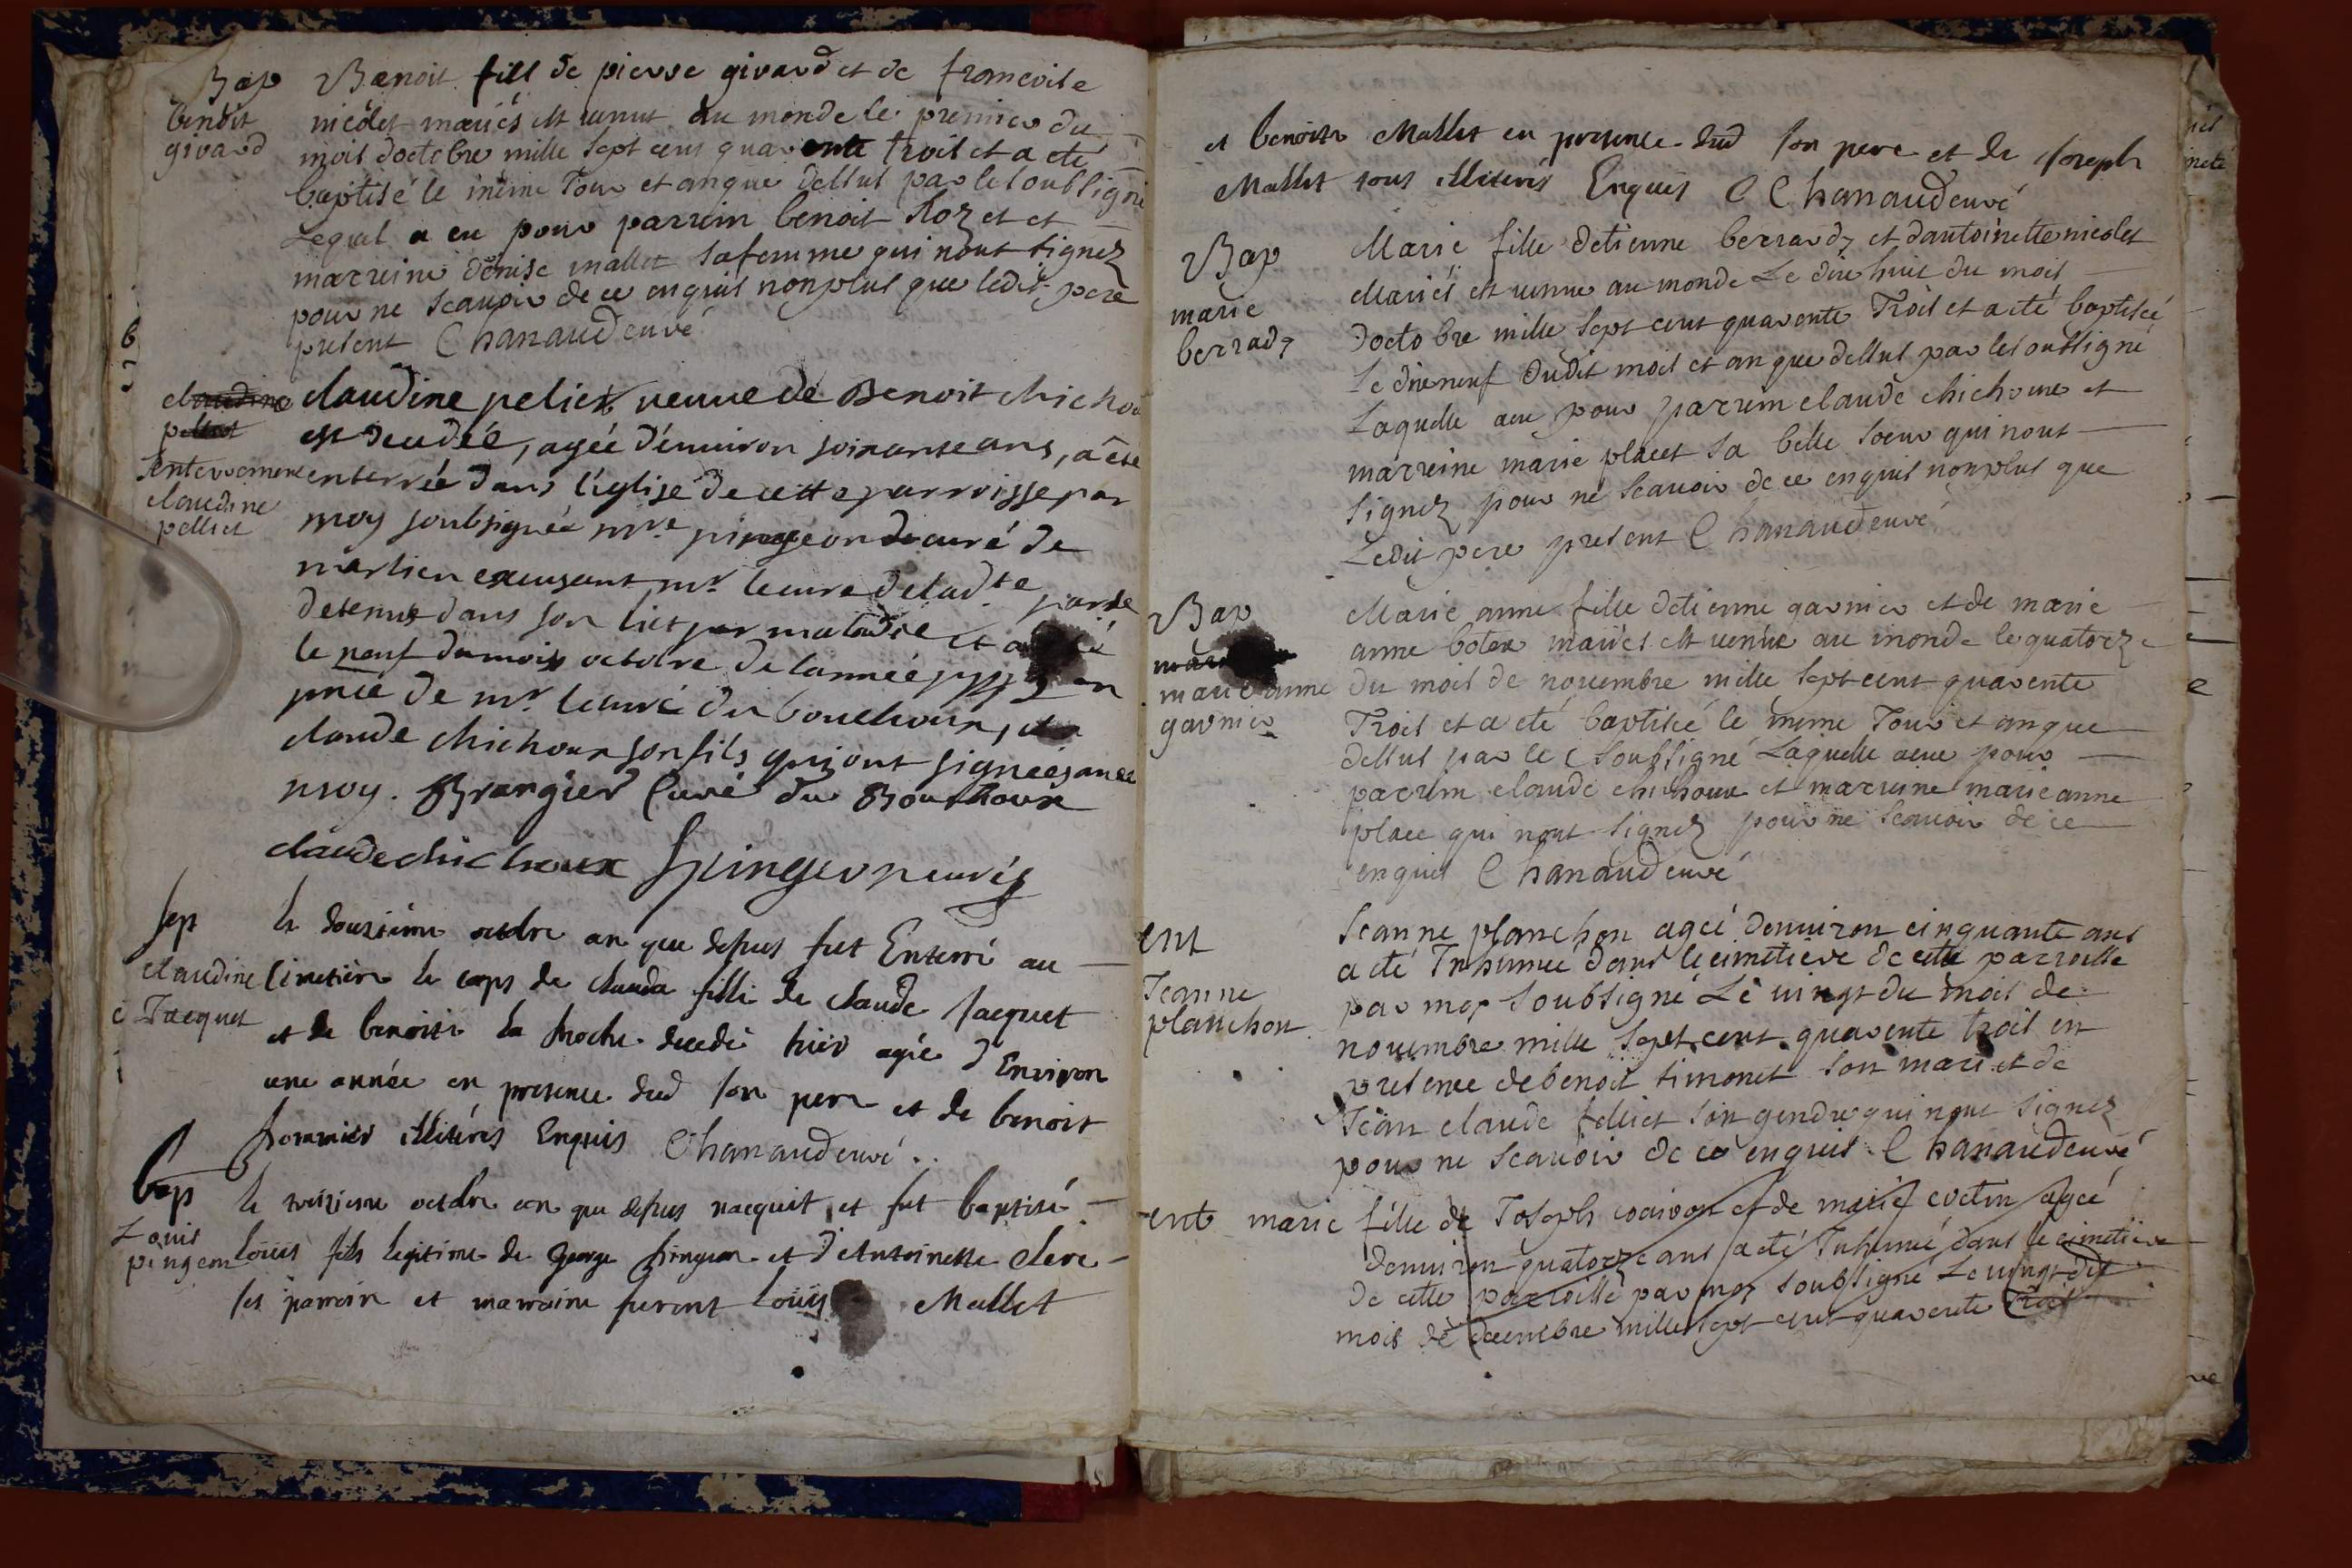 Bap
benoit
girard
Benoit fils de pierre girard et de francoise
nicolet mariés est venut au monde le premier du
mois doctobre mille sept cens quarente trois et a eté
baptisé le même Jour et anque dessus par le soubsigné
Lequel a eu pour parrein benoit Rozet et
marreine denise mallet sa femme qui nont signez
pour ne scauoir de ce enquis nonplus que ledit pere
present Chanaud curé
claudine
Enterrement
claudine
pelliet
claudine peliet veuve de Benoit chichou
est decedéé, agéé d'enuiron soixante ans, a été
enterréé dans l'église de cette parroisse par
moy soubsigné mre pingeon curé de
marlieu excusant mr. le cure de ladte parse
detenus dans son lict par maladie et a
le neuf du mois octobre de lannéé
priée de mr. le curé du bouchoux, et
claude chichoux son fils qui ont signées auec
moy. Brangier Curé du Bouchoux
claude chichoux pingeon curé
Sep
claudine
Jacquet
le douzieme octobre an que dessus fut Enterré au
Cimetière le corps de clauda fille de claude Jacquet
et de benoite la hoche decedé hier agée d'Environ
une année en presence dud son pere et de benoit
fournier illiterés Enquis Chanaud curé..
Bap
Louis
pingeon
le treizieme octobre an que dessus nacquit et fut baptisé
Loüis fils legitime de george pingeon et d'Antoinette clere
ses parrain et marraine furent Loüis Mallet
et benoite Mallet en presence dud son pere et de Joseph
Mallet tous illiterés Enquis Chanaud curé
Bap
marie
berrad
Marie fille detienne berrard et dantoinette nicolet
Mariés est venue au monde Le dix huit du mois
doctobre mille sept cent quarente Trois et a eté baptiséé
Le dixneuf dudit mois et an que dessus par le soubsigné
Laquelle aeu pour parrein claude chichoux et
marreine marie placet sa belle soeur qui nont
signez pour ne scauoir de ce enquis nonplus que
Ledit pere present Chanaud curé
Bap
marie anne
garnier
Marie anne fille detienne garnier et de marie
anne botex mariés est venüe au monde le quatorze
du mois de nouembre mille sept cent quarente
Trois et a eté baptiséé le même Jour et anque
dessus par le soubsigné Laquelle aeue pour
parrein claude chichoux et marreine marie anne
place qui nont signez pour ne scauoir de ce
enquis Chanaud curé
ent
Jeanne
planchon
Jeanne planchon ageé denuiron cinquante ans
a eté Inhumeé dans le cimetiere de cette parroisse
par moy soubsigné Le uingt du mois de
nouembre mille sept cent quarente trois en
presence de benoit simonet son mari et de
Jean claude felliet son gendre qui nont signez
pour ne scauoir de ce enquis Chanaud curé
ent marie fille de Joseph et de marie ageé
denuiron quatorze ans a eté Inhumeé dans le cimetiere
de cette parroisse par moy soubsigné Le uingt dix
mois de decembre mille sept cent quarente Trois